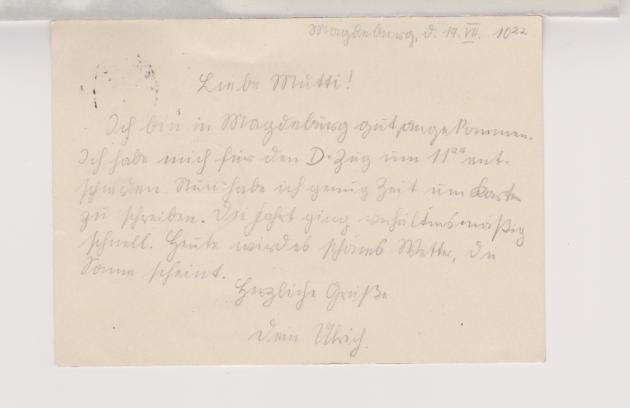 Magdeburg, d. 19. VII. 10²²
Liebe Mutti!
Ich bin in Magdeburg gut angekommen.
Ich habe mich für den D-Zug um 11²⁰ ent-
schieden. Nun habe ich genug Zeit um Karten
zu schreiben. Die Fahrt ging verhältnismäßig
schnell. Heute wird es schönes Wetter, die
Sonne scheint.
Herzliche Grüße
Dein Ulrich.